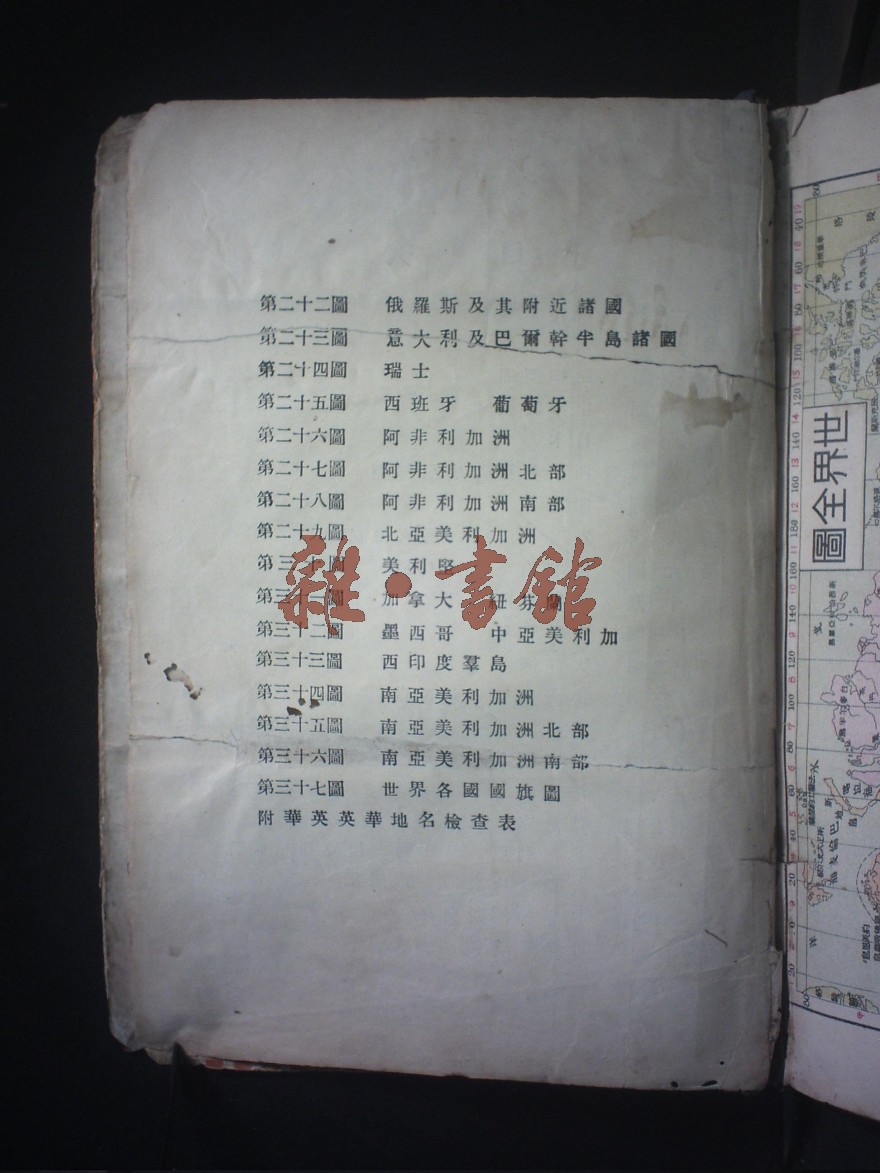 第二十二圖 俄羅斯及其附近諸國
第二十三圖 意大利及巴爾幹半島諸國
第二十四圖 瑞士
第二十五圖 西班牙 葡萄牙
第二十六圖 阿非利加洲
第二十七圖 阿非利加洲北部
第二十八圖 阿非利加洲南部
第二十九圖 北亞美利加洲
第三十圖 美利堅
第三十一圖 加拿大 紐芬蘭
第三十二圖 墨西哥 中亞美利加
第三十三圖 西印度羣島
第三十四圖 南亞美利加洲
第三十五圖 南亞美利加洲北部
第三十六圖 南亞美利加洲南部
第三十七圖 世界各國國旗圖
附華英英華地名檢查表
雜·書館
世界全圖